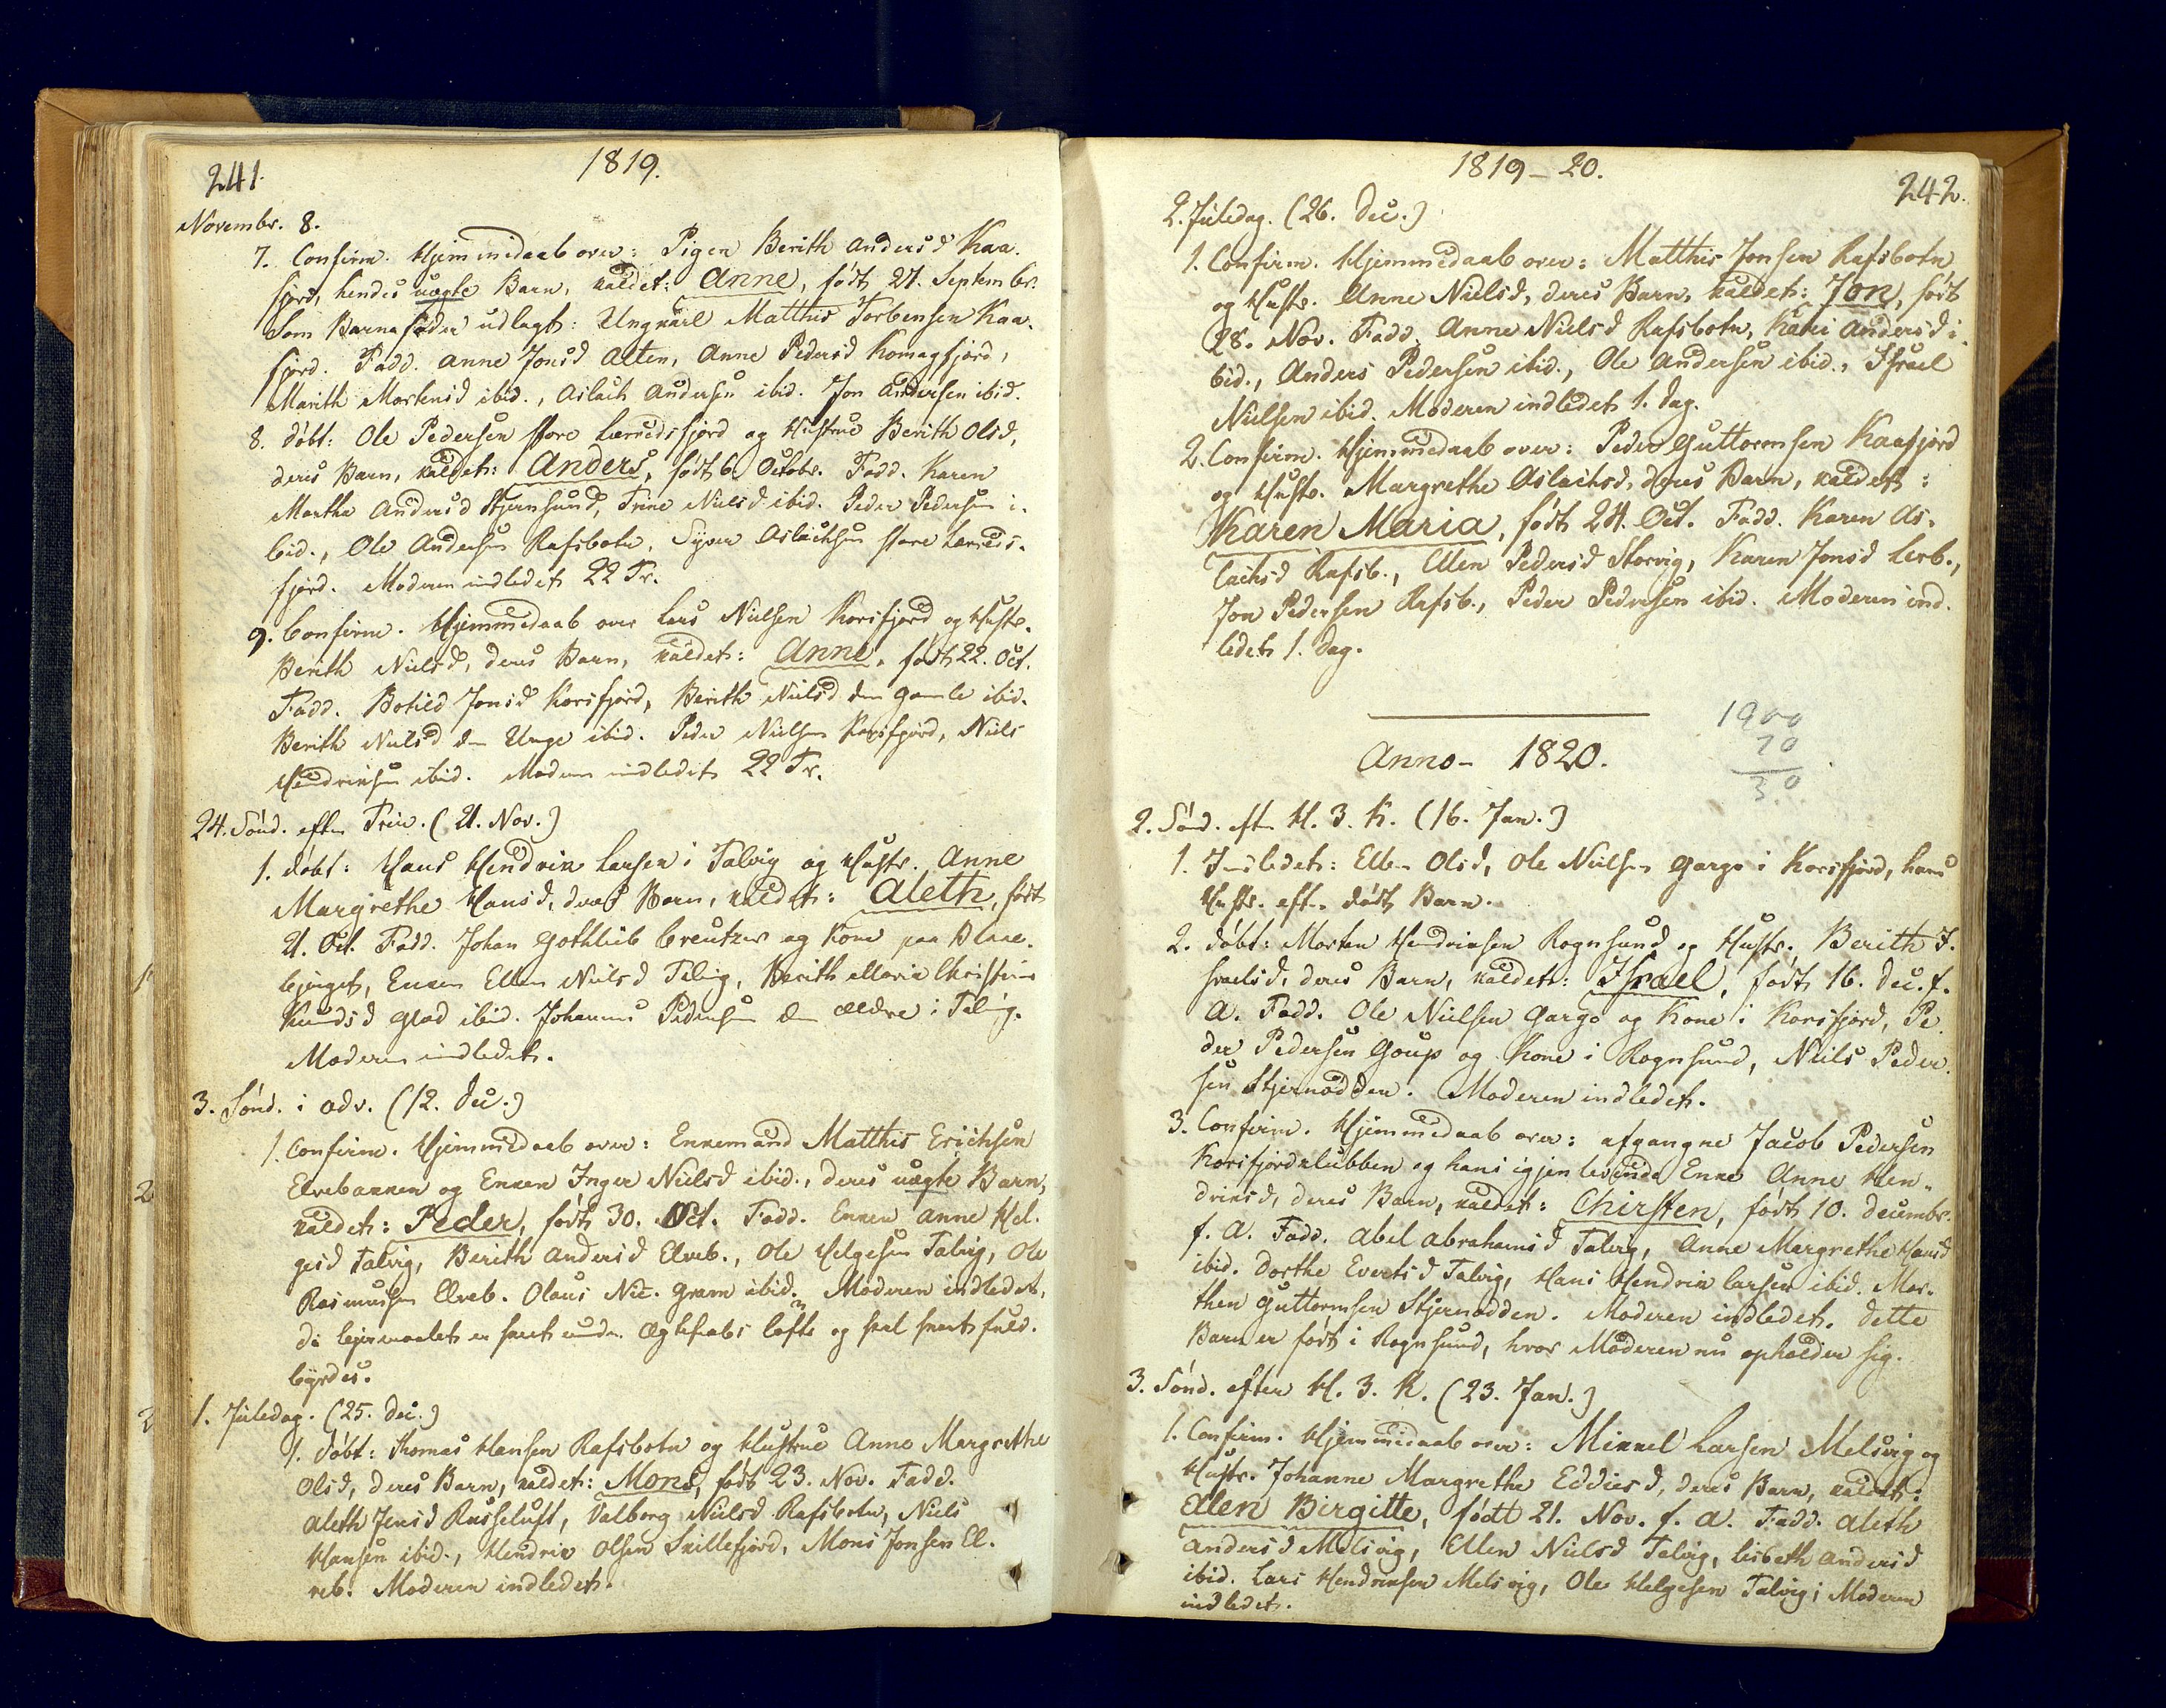 241.
1819.
Novembr. 8.
7. Confirm. Hjemmedaab over: Pigen Berith Andersd Kaa-
fjord, hendes uægte Barn, kaldet: Anne, födt 27. Septembr.
Som Barnefader udlagt: Ungkarl Matthis Torbensen Kaa-
fjord. Fadd. Anne Jonsd Alten, Anne Pedersd Komagfjord,
Marith Mortensd ibid., Aslach Andersen ibid. Jon Andersen ibid.
8. döbt: Ole Pedersen Store Lerredsfjord og Hustrue Berith Olsd,
deres Barn, kaldet: Anders, födt 6. Octobr. Fadd. Karen
Martha Andersd Stjernsund, Trine Nielsd ibid. Peder Pedersen i-
bid., Ole Andersen Rafsbotn, Syver Aslachsen Store Lerreds-
fjord. Moderen indledet 22 Tr.
9. Confirm. Hjemmedaab over Lars Nielsen Korsfjord og Hustr.
Berith Nielsd, deres Barn, kaldet: Anne, födt 22. Oct.
Fadd. Botild Jonsd Korsfjord, Berith Nielsd den Gamle ibid.
Berith Nielsd den Unge ibid. Peder Nielsen Korsfjord, Niels
Hendrichsen ibid. Moderen indledet 22 Tr.
24. Sönd. efter Trin. (21. Nov.)
1. döbt: Hans Hendrik Larsen i Talvig og Hustr. Anne
Margrethe Hansd, deres Barn, kaldet: Aleth, födt
21. Oct. Fadd. Johan Gothlieb Creutzer og Kone paa
Enken Ellen Nielsd Talvig, Berith Maria Christine
Knudsd Glad ibid. Johannes Pedersen den ældre i Talvig.
Moderen indledet.
3. Sönd. i Adv. (12. Dec.)
1. Confirm. Hjemmedaab over: Enkemand Matthis Erichsen
Elvebakken og Enken Inger Nielsd ibid., deres uægte Barn,
kaldet: Peder, födt 30. Oct. Fadd. Enken Anne Hel-
gesd Talvig, Berith Andersd Elveb., Ole Helgesen Talvig, Ole
Rasmussen Elveb. Olaus Nic. Gram ibid. Moderen indledet,
da lejermaalet er skeet under Ægteskabs löfte og skal snart fuld-
byrdes.
1. Juledag. (25. Dec.)
1. döbt: Thomas Hansen Rafsbotn og Hustrue Anne Margrethe
Olsd, deres Barn, kaldet: Mons, födt 23. Nov. Fadd.
Aleth Jensd Russeluft, Valborg Nielsd Rafsbotn, Niels
Hansen ibid., Hendrik Olsen Skillefjord, Mons Jonsen El-
veb. Moderen indledet.
1819-20.
242.
2. Juledag. (26. Dec.)
1. Confirm. Hjemmedaab over: Matthis Jonsen Rafsbotn
og Hustr. Anne Nielsd, deres Barn, kaldet: Jon, födt
28. Nov. Fadd. Anne Nielsd Rafsbotn, Kari Andersd i-
bid., Anders Pedersen ibid., Ole Andersen ibid., Israel
Nielsen ibid. Moderen indledet 1. Dag.
2. Confirm. Hjemmedaab over: Peder Guttormsen Kaafjord
og Hustr. Margrethe Aslachsd, deres Barn, kaldet:
Karen Maria, födt 24. Oct. Fadd. Karen As-
lachsd Rafsb., Ellen Pedersd Storvig, Karen Jonsd Lerb.,
Jon Pedersen Rafsb., Peder Pedersen ibid. Moderen ind-
ledet 1. Dag.
1900
70
Anno- 1820.
2. Sönd. eft. H. 3. K. (16. Jan.)
1. Indledet: Ellen Olsd, Ole Nielsen Gargo i Korsfjord, hans
Hustr. eft. födt Barn.
2. döbt: Morten Hendrichsen Rognsund og Hustr. Berith I-
sraelsd, deres Barn, kaldet: Israel, födt 16. Dec. f.
A. Fadd. Ole Nielsen Gargo og Kone i Korsfjord, Pe-
der Pedersen Goup og Kone i Rognsund, Niels Peder-
sen Stjernodden. Moderen indledet.
3. Confirm. Hjemmedaab over: afgangne Jacob Pedersen
Korsfjordklubben og hans igjenlevende Enke Anne Hen-
driksd, deres Barn, kaldet: Chirsten, födt 10. Decembr.
f. A. Fadd. Abel Abrahamsd Talvig, Anne Margrethe Hansd
ibid. Dorthe Evertsd Talvig, Hans Hendrik Larsen ibid. Mor-
then Guttormsen Stjernodden. Moderen indledet. Dette
Barn er födt i Rognsund, hvor Moderen nu opholder sig.
3. Sönd. efter H. 3. K. (23. Jan.)
1. Confirm. Hjemmedaab over: Mikkel Larsen Melsvig og
Hustr. Johanne Margrethe Eddiesd, deres Barn, kaldet:
Elen Birgitte, födt 21. Nov. f. A. Fadd. Aleth
Andersd Melsvig, Ellen Nielsd Talvig, Lisbeth Andersd
ibid. Lars Hendriksen Melsvig, Ole Helgesen Talvig; Moderen
indledet.